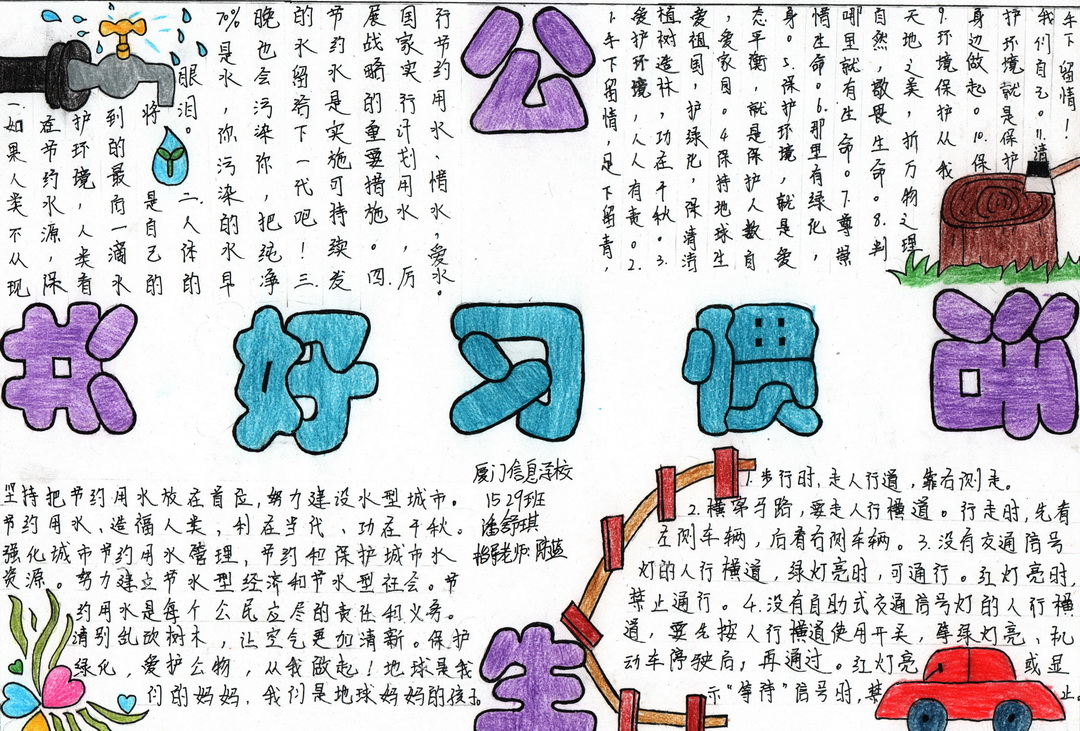 一.如果人类不从现
在节约水源,保
护环境,人类看
到的最后一滴水
将是自己的
眼泪。二.人体的
70%是水,你污染的水早
晚也会污染你,把纯净
的水留有下一代吧!三.
节约用水是实施可持续发
展战略的重要措施。四.
国家实行计划用水,厉
行节约用水、惜水,爱水。
公
1.手下留情,足下留青,
爱护环境,人人有责。2.
植树造林,功在千秋。3.
爱祖国,护绿化,保清清
,爱家园。4保持地球生
态平衡,就是保护人数自
身。5.保护环境,就是爱
惜生命。6.那里有绿化,
哪里就有生命。7.尊崇
自然,敬畏生命。8.判
天地之美,析万物之理
9.环境保护从我
身边做起。10.保
护环境就是保护
我们自己。11.请
手下留情!
共 好 习 惯
坚持把节约用水放在首位,努力建设水型城市。
节约用水、造福人类,利在当代、功在千秋。
强化城市节约用水管理,节约和保护城市水
资源。努力建立节水型经济和节水型社会。节
约用水是每个公民应尽的责任和义务。
请别乱砍树木,让空气更加清新。保护
绿化,爱护公物,从我做起!地球是我
们的妈妈,我们是地球妈妈的孩子。
厦门信息学校
1529班
潘舒琪
生
1.步行时,走人行道,靠右侧走。
2.横穿马路,要走人行横道。行走时,先看
左侧车辆,后看右侧车辆。3.没有交通信号
灯的人行横道,绿灯亮时,可通行。红灯亮时,
禁止通行。4.没有自助式交通信号灯的人行横
道,要先按人行横道使用开关,等绿灯亮、机
动车停驶后,再通过。红灯亮 或显
示“等待”信号时,禁 止